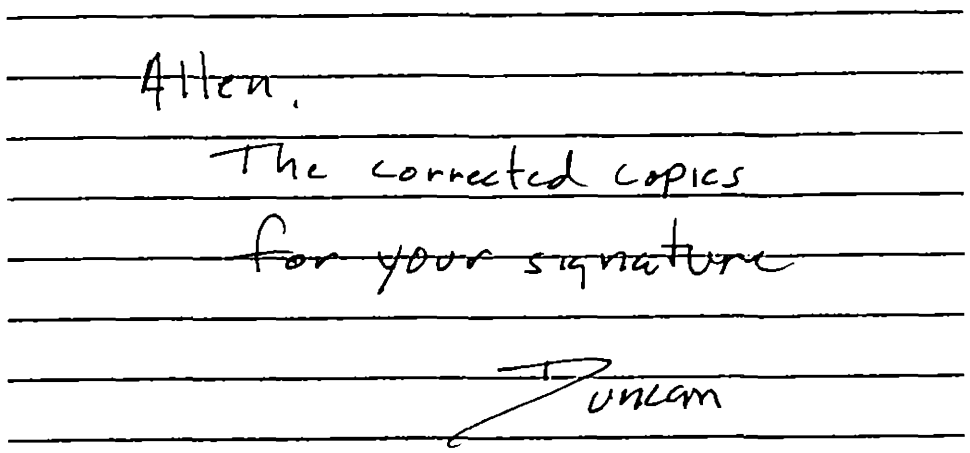 Allen.
The corrected copies
for your signature
Duncan